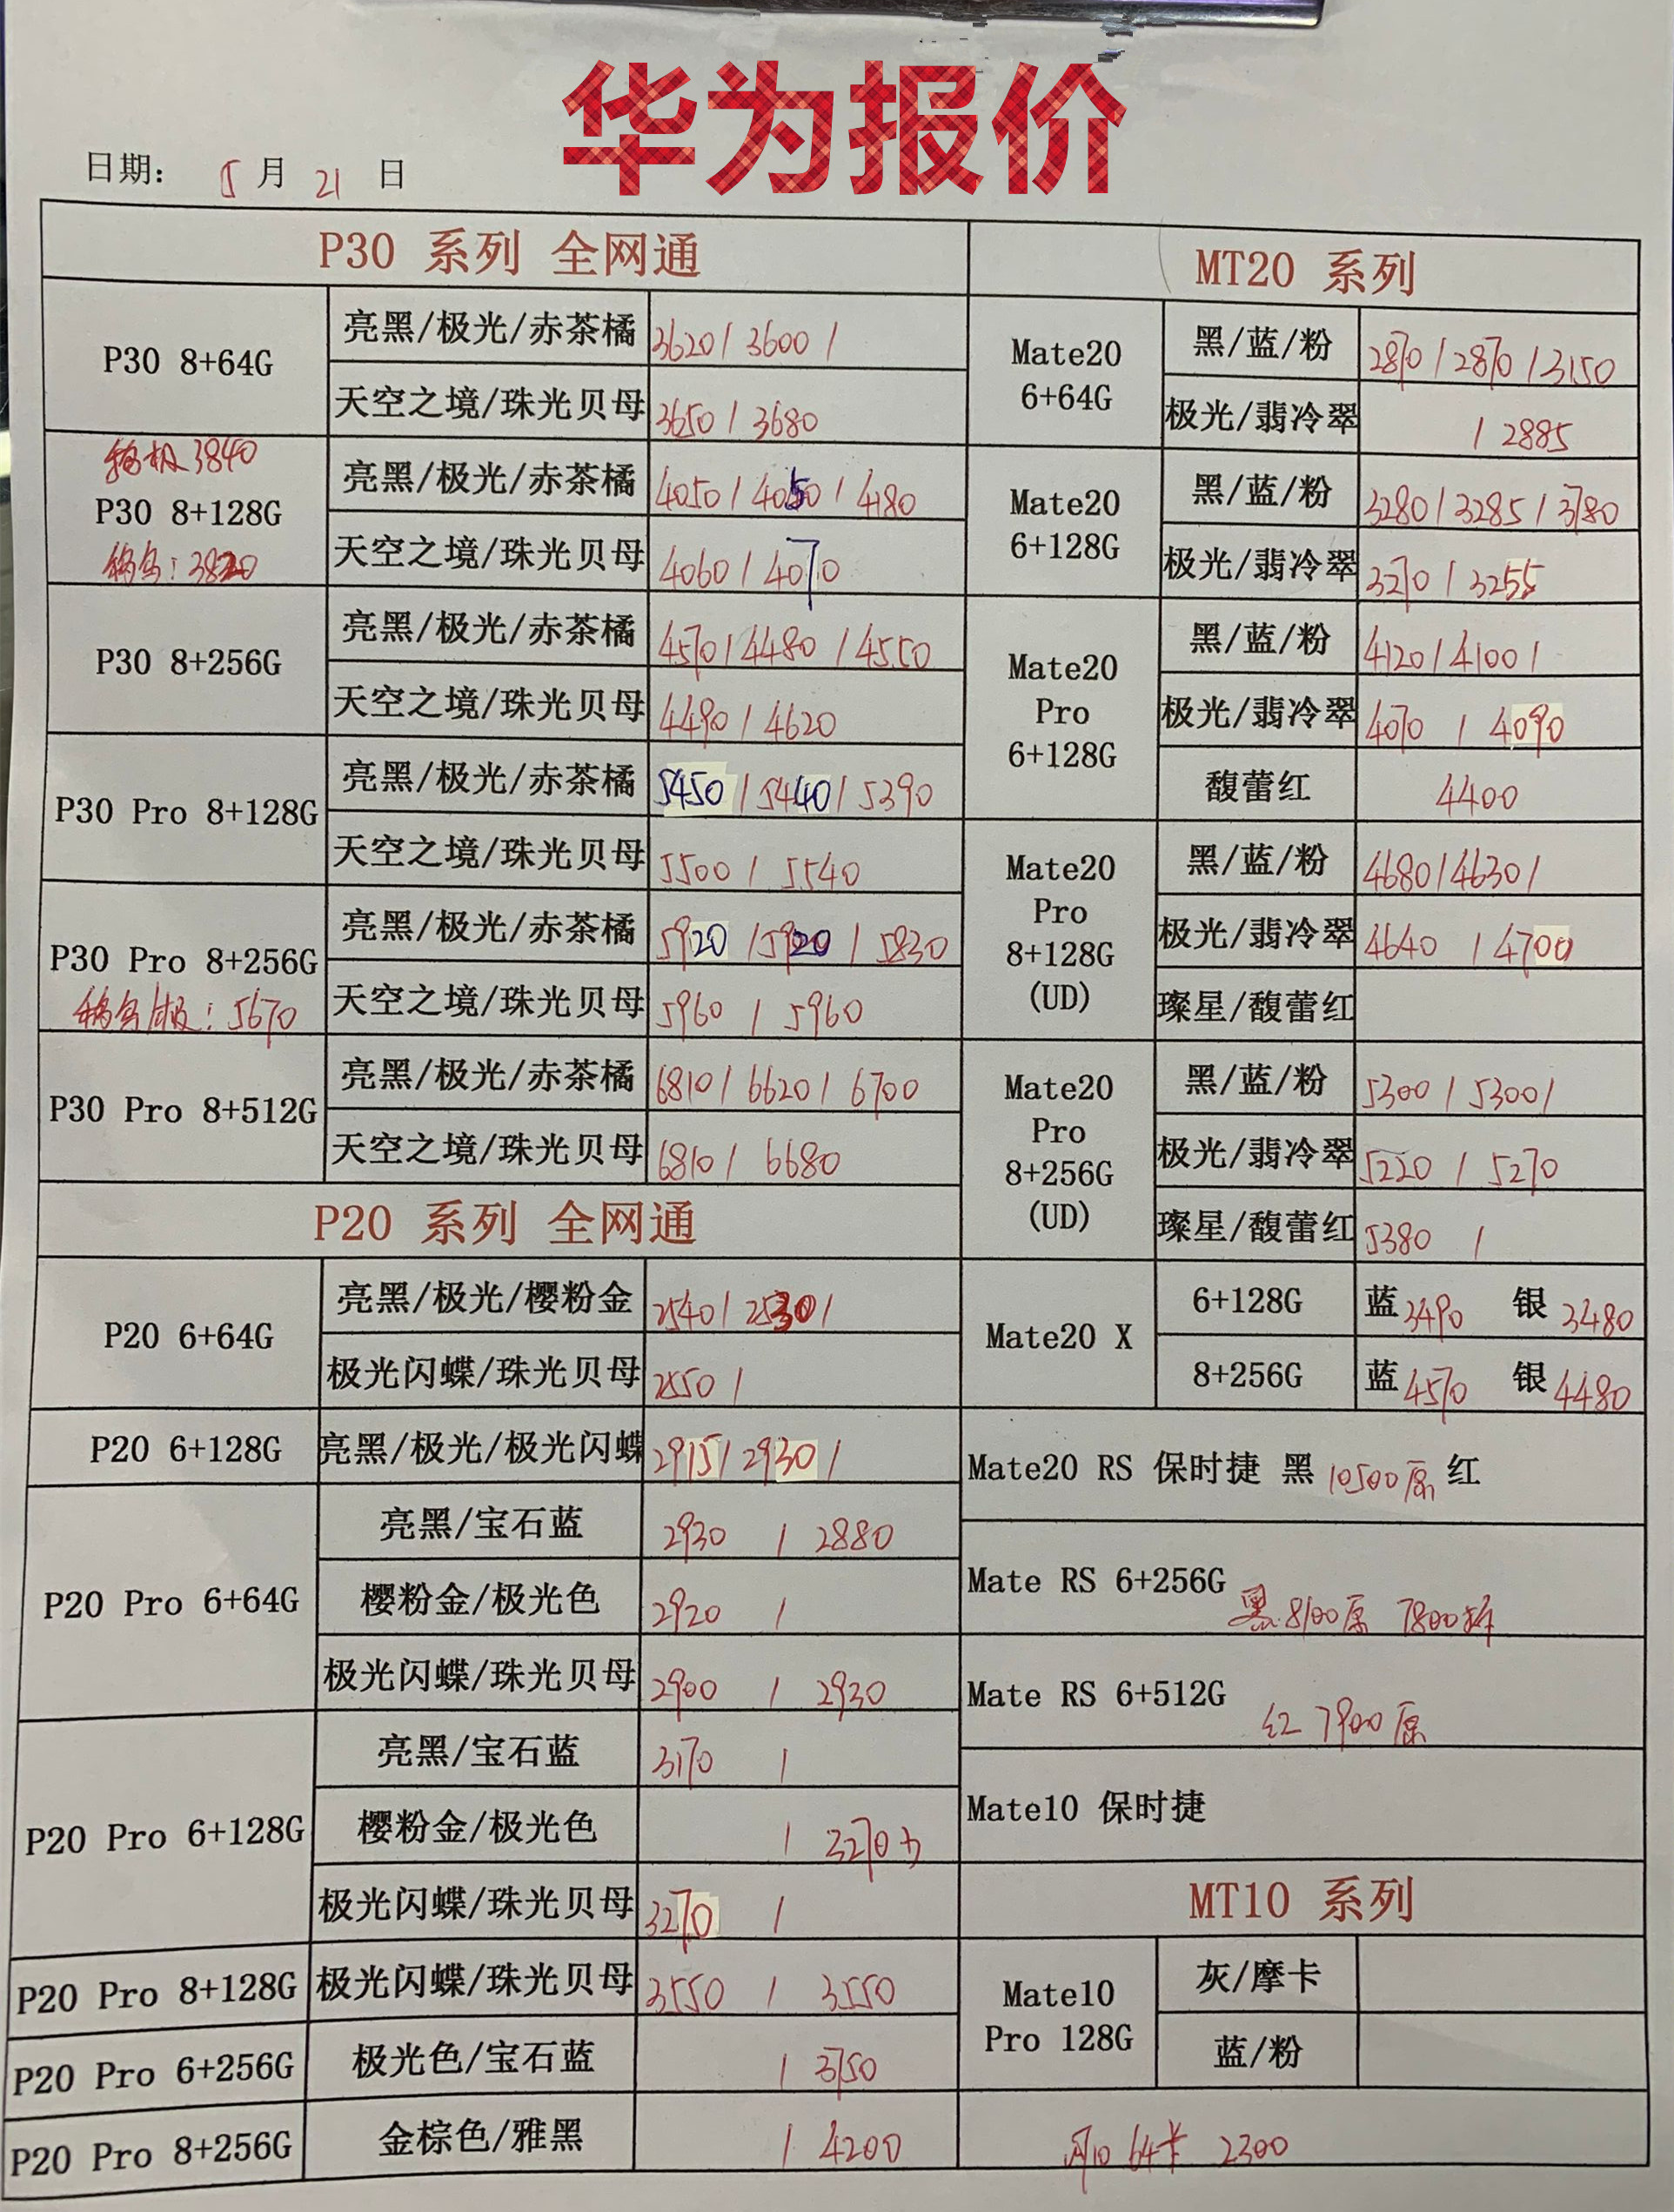 华为报价
日期: 5 月 21 日
P30 系列 全网通
P30 8+64G
亮黑/极光/赤茶橘 3620/3600/
天空之境/珠光贝母 3650/3680
3840
P30 8+128G
3820
亮黑/极光/赤茶橘 4050/4050/4180
天空之境/珠光贝母 4060/4070
P30 8+256G
亮黑/极光/赤茶橘 4570/4480/4550
天空之境/珠光贝母 4490/4620
P30 Pro 8+128G
亮黑/极光/赤茶橘 5450/5440/5390
天空之境/珠光贝母 5500/5540
P30 Pro 8+256G
5670
亮黑/极光/赤茶橘 5920/5920/5830
天空之境/珠光贝母 5960/5960
P30 Pro 8+512G
亮黑/极光/赤茶橘 6810/6620/6700
天空之境/珠光贝母 6810/6680
P20 系列 全网通
P20 6+64G
亮黑/极光/樱粉金 2540/2530/
极光闪蝶/珠光贝母 2550/
P20 6+128G
亮黑/极光/极光闪蝶 2915/2930/
P20 Pro 6+64G
亮黑/宝石蓝 2930/2880
樱粉金/极光色 2920/
极光闪蝶/珠光贝母 2900/2930
P20 Pro 6+128G
亮黑/宝石蓝 3170/
樱粉金/极光色 /3270
极光闪蝶/珠光贝母 3270/
P20 Pro 8+128G
极光闪蝶/珠光贝母 3550/3550
P20 Pro 6+256G
极光色/宝石蓝 /3750
P20 Pro 8+256G
金棕色/雅黑 /4200
MT20 系列
Mate20
6+64G
黑/蓝/粉 2870/2870/3150
极光/翡冷翠 /2885
Mate20
6+128G
黑/蓝/粉 3280/3285/3780
极光/翡冷翠 3270/3255
Mate20
Pro
6+128G
黑/蓝/粉 4120/4100/
极光/翡冷翠 4070/4090
馥蕾红 4400
Mate20
Pro
8+128G
(UD)
黑/蓝/粉 4680/4630/
极光/翡冷翠 4640/4700
璨星/馥蕾红
Mate20
Pro
8+256G
(UD)
黑/蓝/粉 5300/5300/
极光/翡冷翠 5220/5270
璨星/馥蕾红 5380/
Mate20 X
6+128G 蓝 3490 银 3480
8+256G 蓝 4570 银 4480
Mate20 RS 保时捷 黑 10500原 红
Mate RS 6+256G 黑8100原 7800拆
Mate RS 6+512G 红 7900原
Mate10 保时捷
MT10 系列
Mate10
Pro 128G
灰/摩卡
蓝/粉
2300